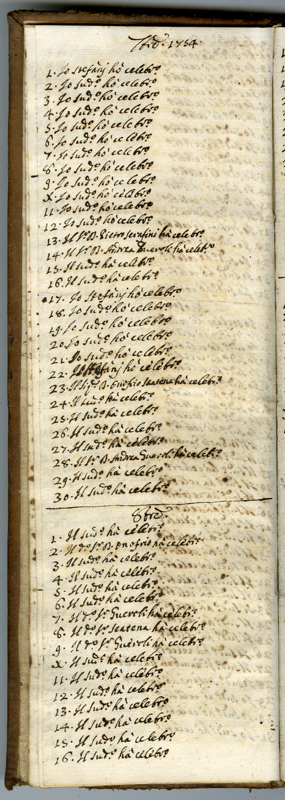 7bre 1754
1. Io Stefanj hò celebrº
2. Io sudº hò celebrº
3. Io sudº hò celebrº
4. Io sudº hò celebrº
5. Io sudº hò celebrº
6. Io sudº hò celebrº
7. Io sudº hò celebrº
8. Io sudº hò celebrº
9. Io sudº hò celebrº
X. Io sudº hò celebrº
11. Io sudº hò celebrº
12. Io sudº hò celebrº
13. Il Sr D. Pietro Serafini hà celebrº
14. Il Sr D. Andrea Gueroli hà celebrº
15. Il sudº hà celebrº
16. Il sudº hà celebrº
17. Io Stefanj hò celebrº
18. Io sudº hò celebrº
19. Io sudº hò celebrº
20. Io sudº hò celebrº
21. Io sudº hò celebrº
22. Io Stefanj hò celebrº
23. Il Sr D. Onofrio hà celebrº
24. Il sudº hà celebrº
25. Il sudº hà celebrº
26. Il sudº hà celebrº
27. Il sudº hà celebrº
28. Il Sr D. Andrea Gueroli hà celebrº
29. Il sudº hà celebrº
30. Il sudº hà celebrº
8bre
1. Il sudº hà celebrº
2. Il do Sr D. Onofrio hà celebrº
3. Il sudº hà celebrº
4. Il sudº hà celebrº
5. Il sudº hà celebrº
6. Il sudº hà celebrº
7. Il do Sr Gueroli hà celebrº
8. Il do Sr hà celebrº
9. Il do Sr Gueroli hà celebrº
X. Il sudº hà celebrº
11. Il sudº hà celebrº
12. Il sudº hà celebrº
13. Il sudº hà celebrº
14. Il sudº hà celebrº
15. Il sudº hà celebrº
16. Il sudº hà celebrº